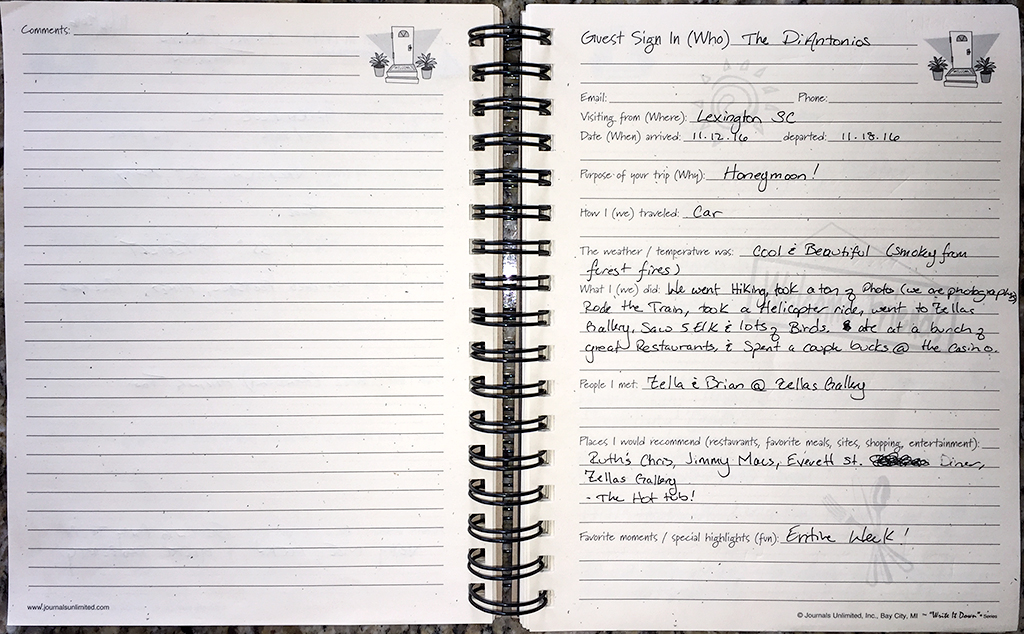 Comments:
www.journalsunlimited.com
Guest Sign In (Who) The DiAntonios
Email: Phone:
Visiting from (Where): Lexington SC
Date (When) arrived: 11.12.16 departed: 11.18.16
Purpose of your trip (Why): Honeymoon!
How I (we) traveled: Car
The weather / temperature was: Cool & Beautiful (smokey from
forest fires)
What I (we) did: We went Hiking, took a ton of Photo (we are photographers)
Rode the Train, took a Helicopter ride, went to Zellas
Gallery, Saw 5 Elk & lots of Birds. ate at a bunch of
great Restaurants, & Spent a couple bucks @ the Casino.
People I met: Zella & Brian @ Zellas Gallery
Places I would recommend (restaurants, favorite meals, sites, shopping, entertainment):
Ruth's Chris, Jimmy Macs, Everett St. Diner,
Zellas Gallery
- The Hot tub!
Favorite moments / special highlights (fun): Entire Week!
© Journals Unlimited, Inc., Bay City, MI ~ "Write It Down" Series